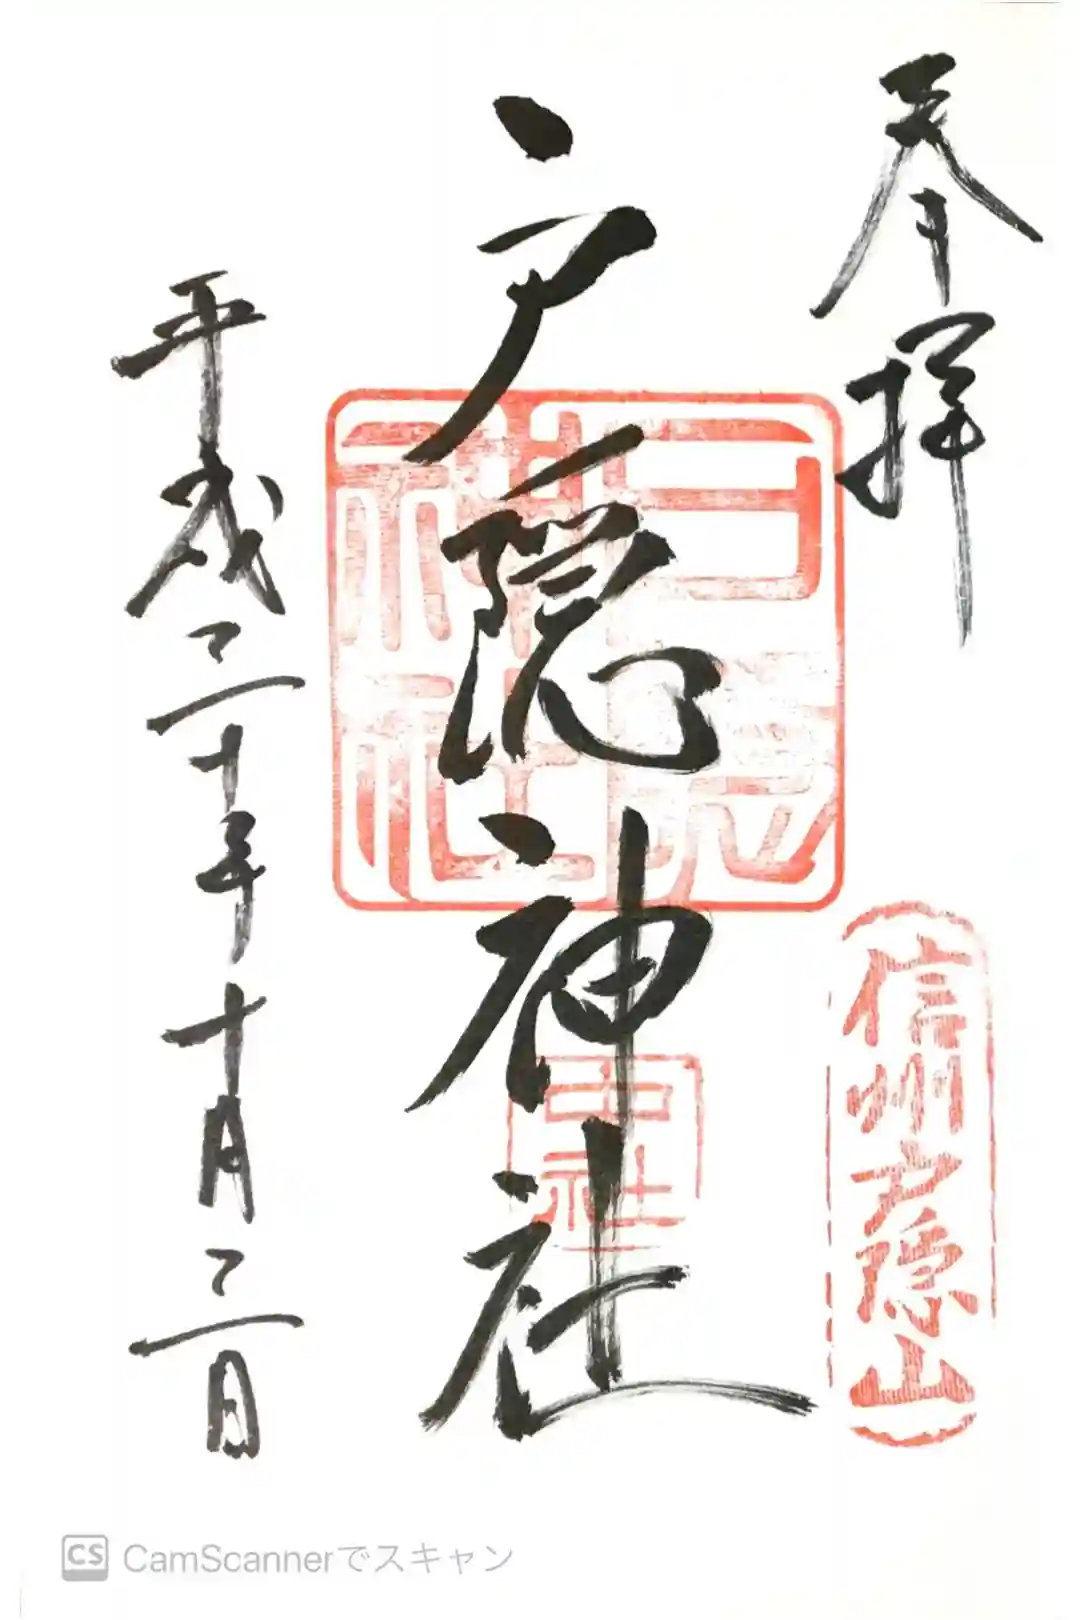 奉拝
信州戸隠山
戸隠神社
戸隠神社
中社
平成二十年十月二日
CS CamScannerでスキャン